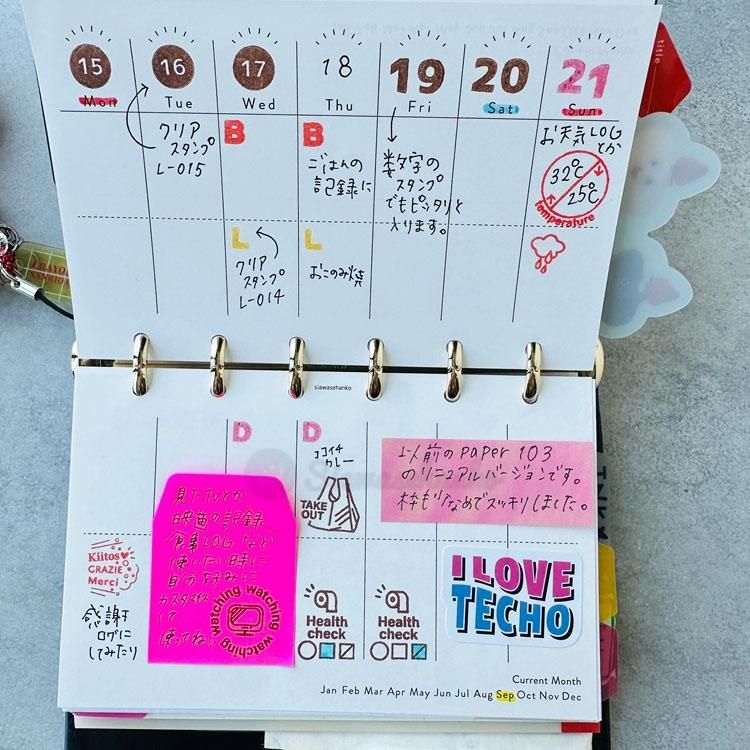 15 16 17 18 19 20 21
Mon Tue Wed Thu Fri Sat Sun
クリア
スタンプ
L-015
B
B
ごはんの
記録に
数字の
スタンプ
でもピッタリと
入ります。
お天気LOG
とか
32℃
25℃
Temperature
L
クリア
スタンプ
L-014
L
おこのみ焼
siawasehanko
D
D
ココイチ
カレー
TAKE
OUT
以前のpaper 103
のリニュアルバージョンです。
枠も少なめでスッキリしました。
見たTVとか
映画の記録、
食事LOGなど
使いたい時に
自分好みに
カスタマイズ
して
使ってね!
watching watching watching
Kiitos
GRAZIE
Merci
感謝を
ログに
してみたり
Health
check
Health
check
I LOVE
TECHO
Current Month
Jan Feb Mar Apr May Jun Jul Aug Sep Oct Nov Dec
title